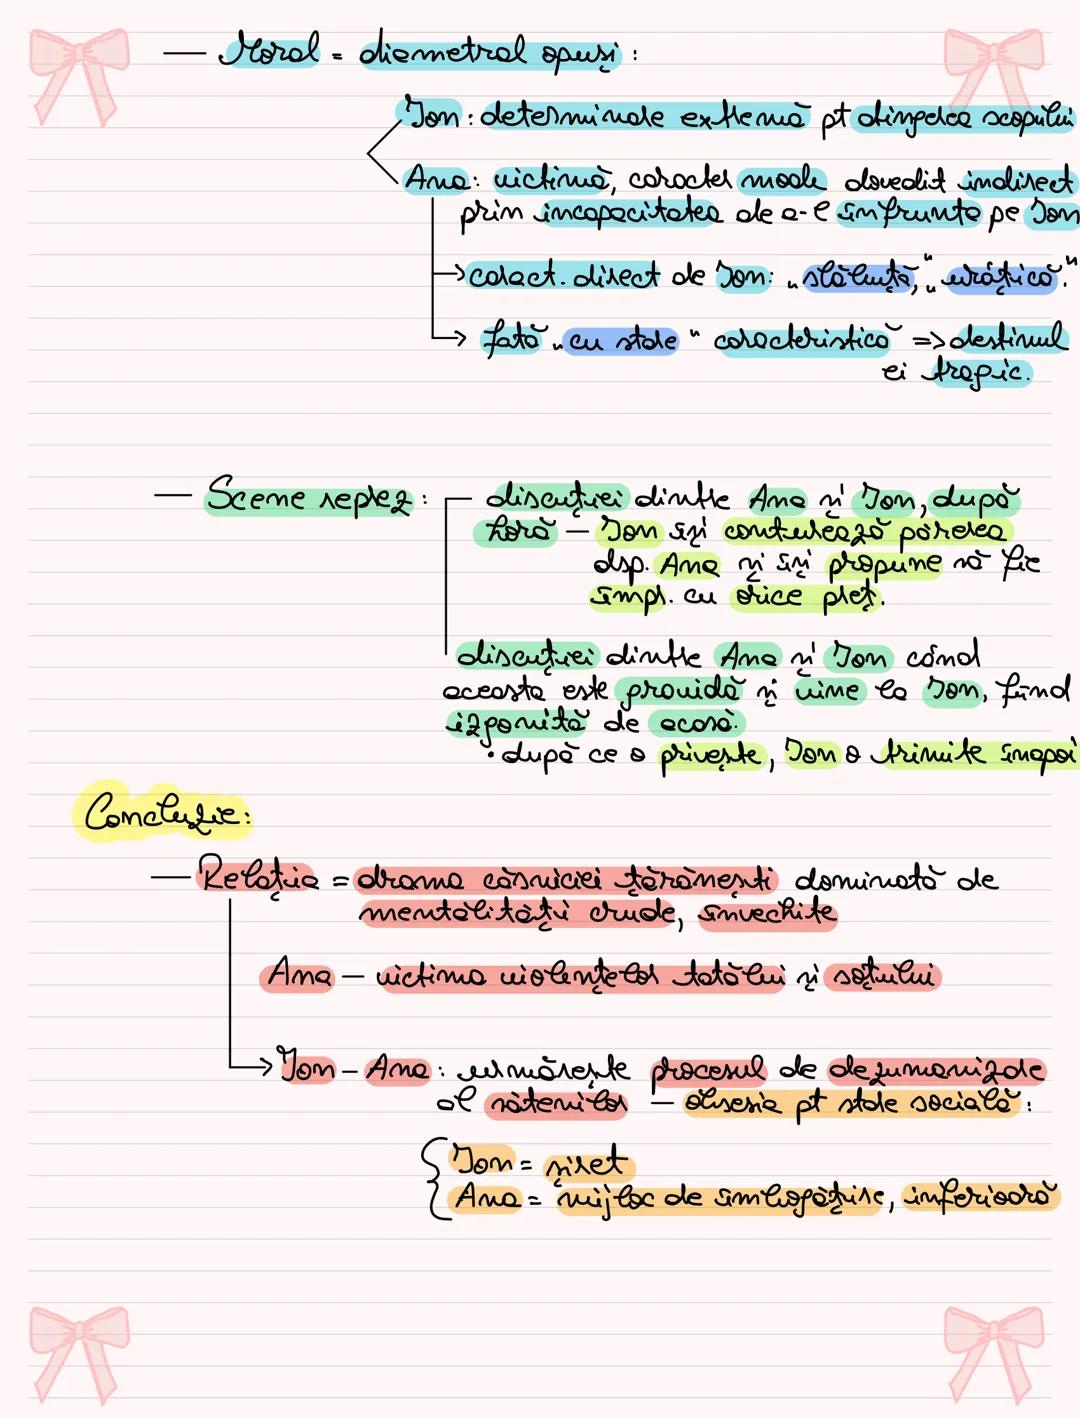 — Moral = diametral opuși :
Ion : determinare extremă pt atingerea scopului
Ana : victimă, caracter moale dovedit indirect
prin incapacitatea de a-l înfrunta pe Ion
→ caract. direct de Ion: „slăbuță," „urâțică."
→ fată „cu stare" caracteristică => destinul
ei tragic.
— Scene reprez :
discuției dintre Ana și Ion, după
horă — Ion își conturează părerea
dsp. Ana și își propune să fie
împl. cu orice preț.
discuției dintre Ana și Ion când
aceasta este gravidă și vine la Ion, fiind
izgonită de acasă.
• după ce o privește, Ion o trimite înapoi
Concluzie:
— Relația = drama căsniciei țărănești dominată de
mentalități crude, învechite
Ana — victima violențelor tatălui și soțului
→ Ion – Ana : urmărește procesul de dezumanizare
al sătenilor — obsesia pt stare socială :
{ Ion = șiret
Ana = mijloc de îmbogățire, inferioară